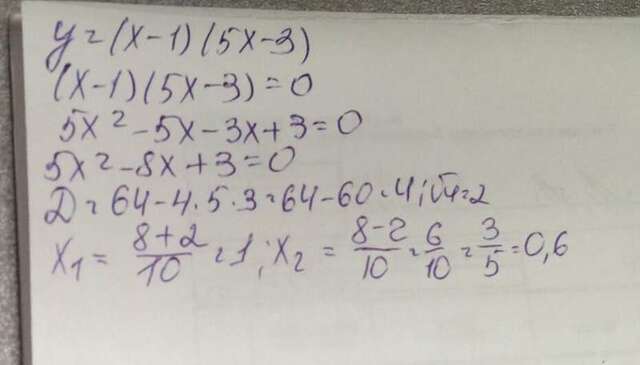 y = (x-1)(5x-3)
(x-1)(5x-3)=0
5x²-5x-3x+3=0
5x²-8x+3=0
D=64-4·5·3=64-60=4; √4=2
x₁ = 8+2/10 = 1; x₂ = 8-2/10 = 6/10 = 3/5 = 0,6